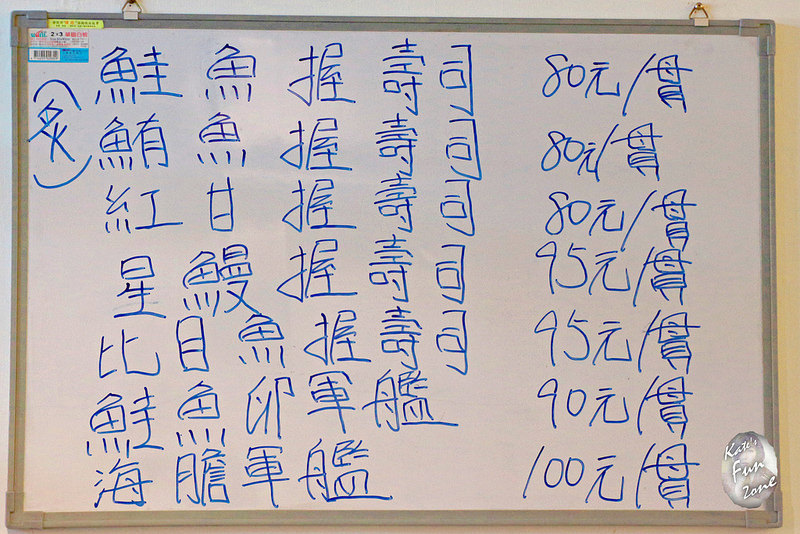 2×3 單面白板
(炙)
鮭魚握壽司 80元/貫
鮪魚握壽司 80元/貫
紅甘握壽司 80元/貫
星鰻握壽司 95元/貫
比目魚握壽司 95元/貫
鮭魚卵軍艦 90元/貫
海膽軍艦 100元/貫
Kate's
Fun
Zone